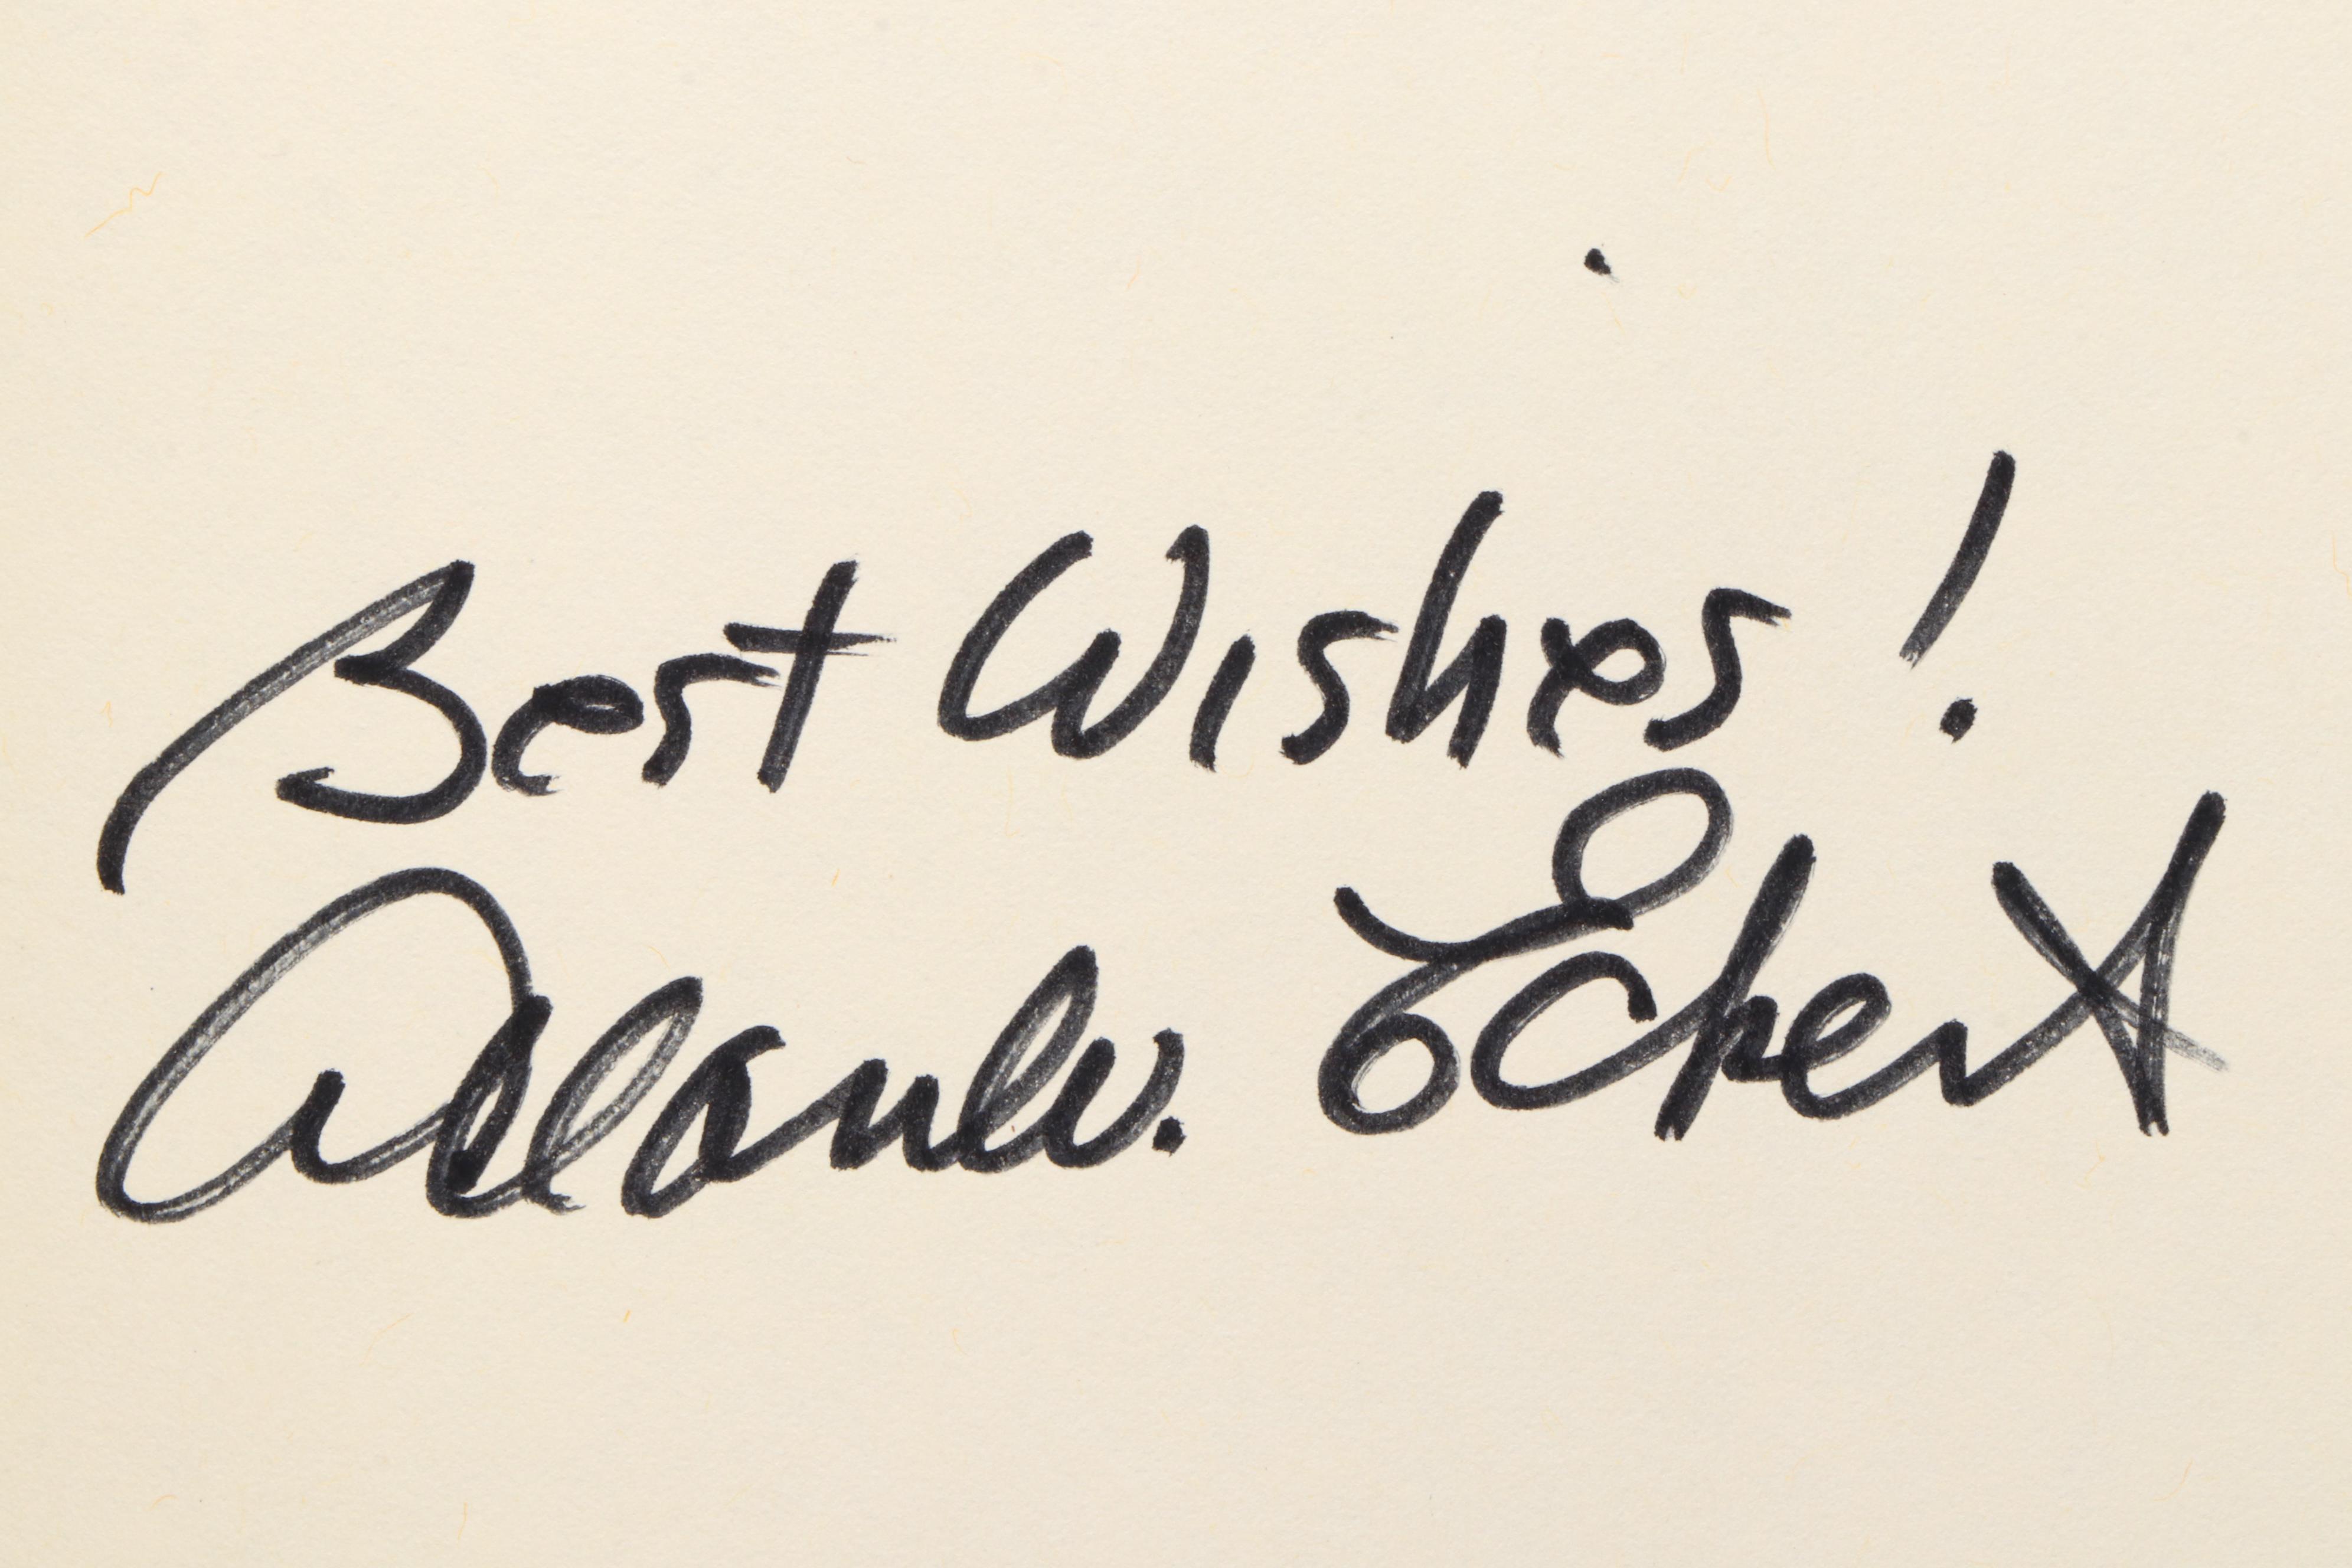 Best Wishes!
Allan W. Eckert